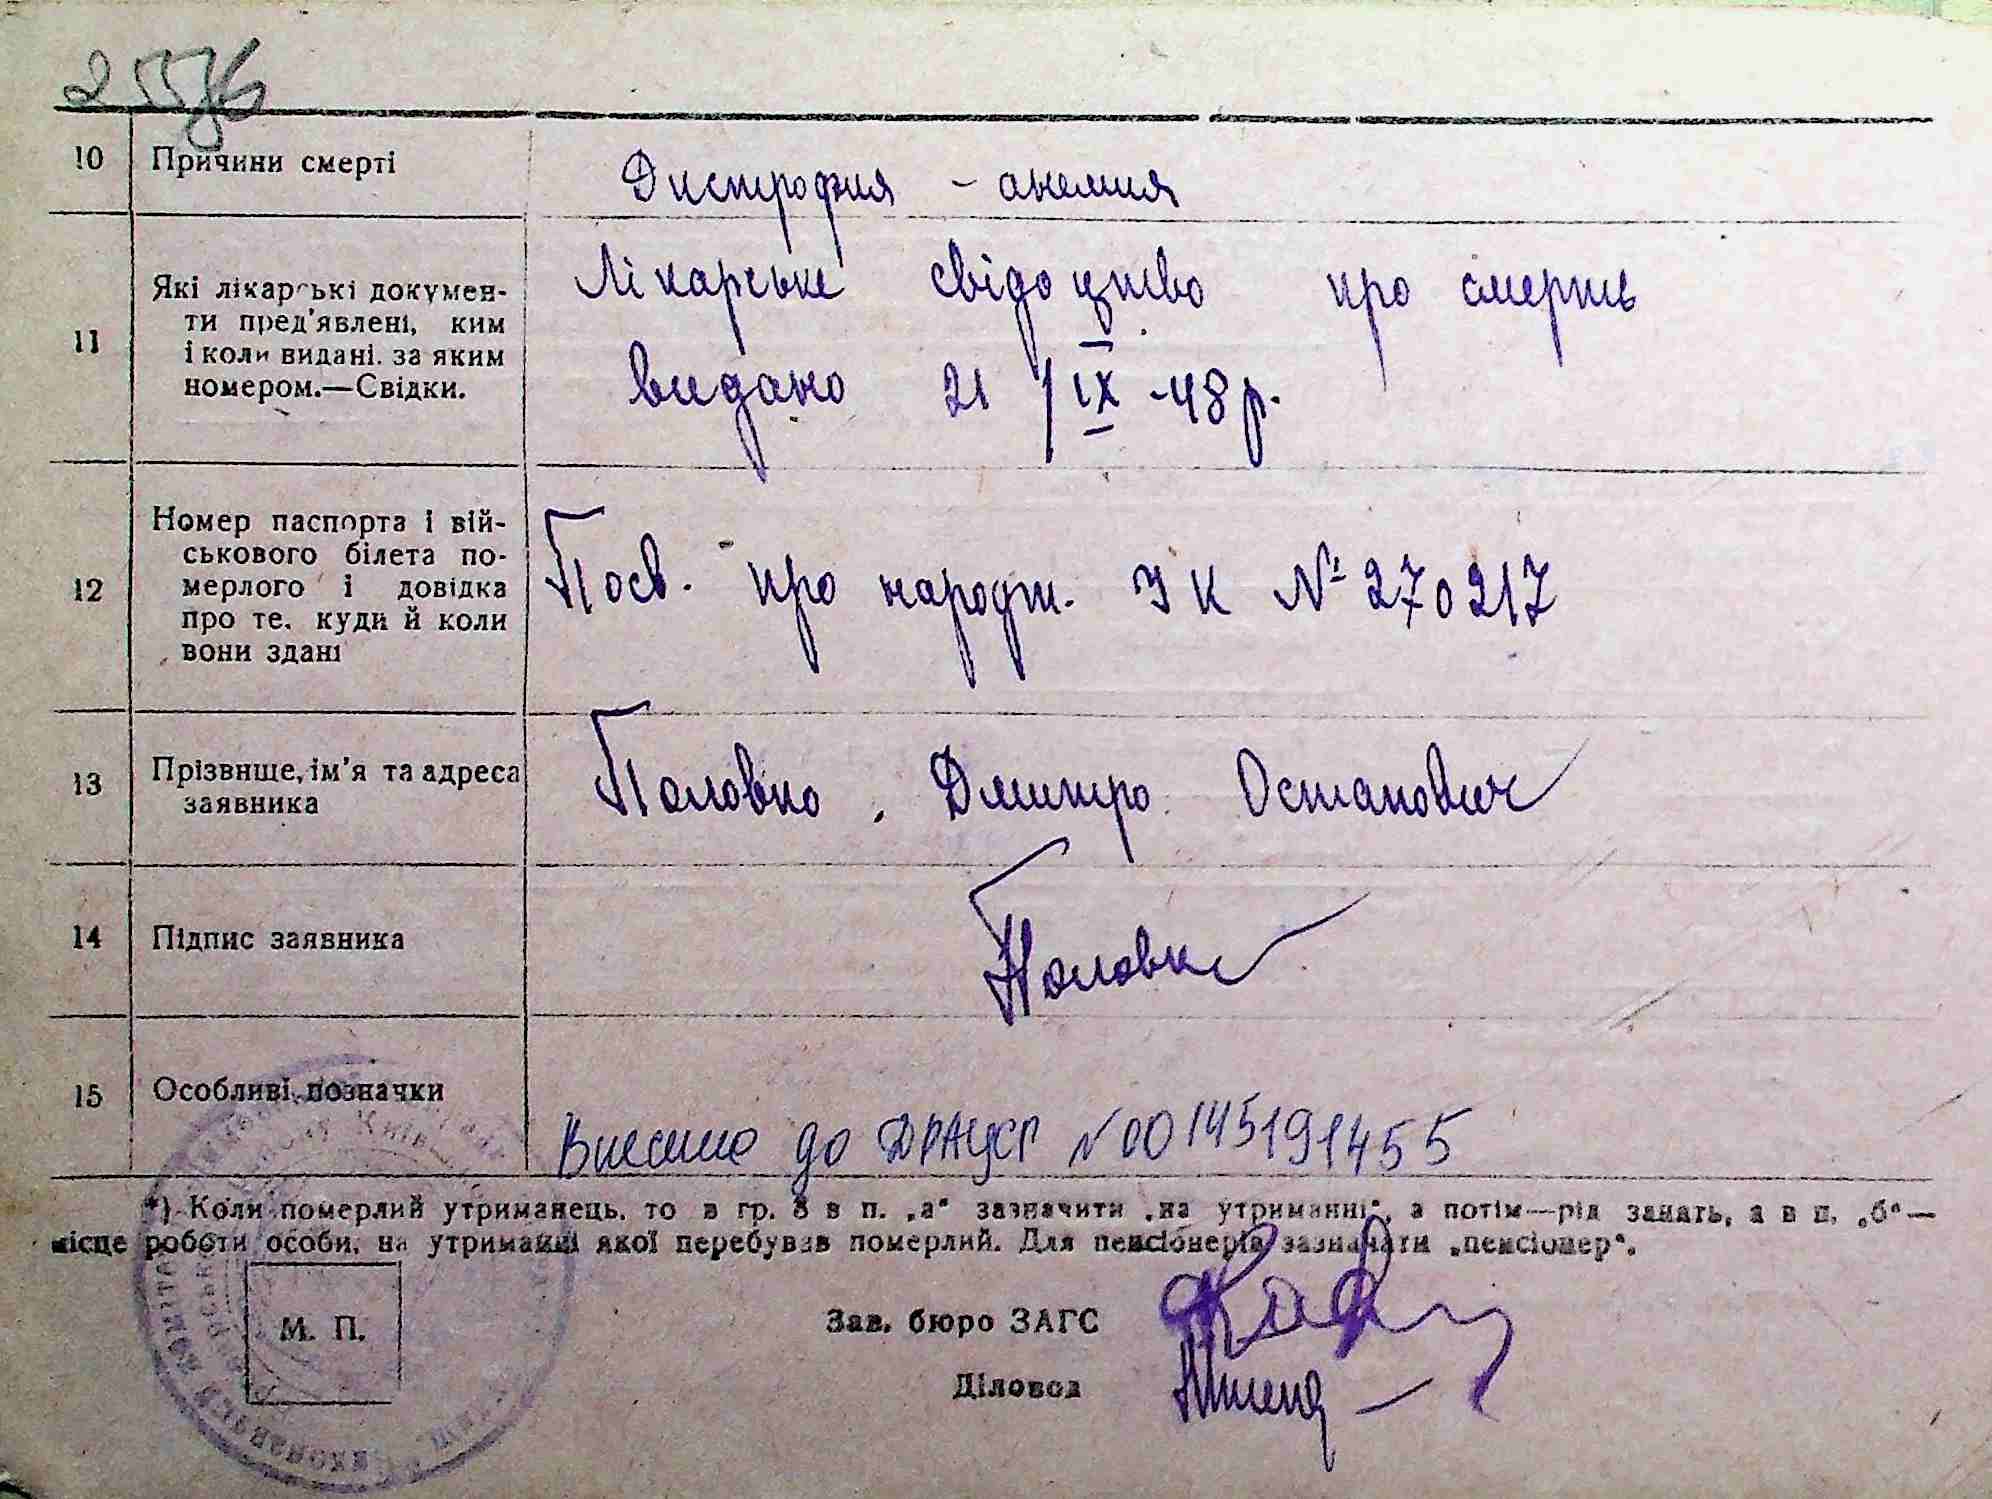 10 Причини смерті Дистрофия - анемия
11 Які лікарські докумен-
ти пред'явлені, ким
і коли видані. за яким
номером.—Свідки.
Лікарське свідоцтво про смерть
видано 21/IX -48 р.
12 Номер паспорта і вій-
ськового білета по-
мерлого і довідка
про те, куди й коли
вони здані
Посв. про народж. УК № 270217
13 Прізвище, ім'я та адреса
заявника
Половко, Дмитро Остапович
14 Підпис заявника Половко
15 Особливі позначки
Внесено до ДРАЦСГ №00145191455
*) Коли померлий утриманець, то в гр. 8 в п. „а“ зазначити „на утриманні“, а потім—рід занять, а в п. „б“—
місце роботи особи, на утриманні якої перебував померлий. Для пенсіонерів зазначати „пенсіонер“.
М. П.
Зав. бюро ЗАГС
Діловод